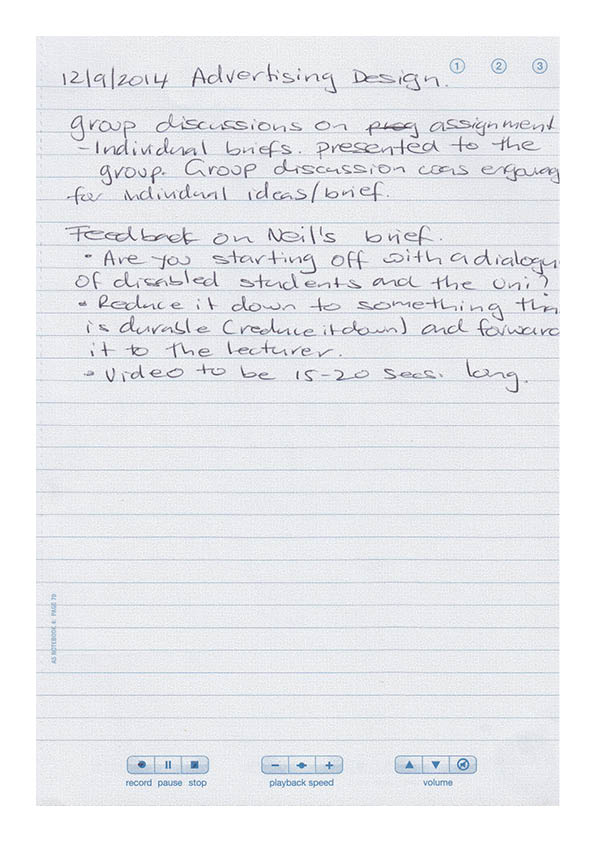 1 2 3
12/9/2014 Advertising Design.
group discussions on assignment
- Individual briefs. presented to the
group. Group discussion was
for individual ideas/brief.
Feedback on Neil's brief.
• Are you starting off with a dialogu
of disabled students and the Uni?
• Reduce it down to something tha
is durable (reduce it down) and forward
it to the lecturer.
• Video to be 15-20 secs. long.
A5 NOTEBOOK 4: PAGE 79
record pause stop
playback speed
volume